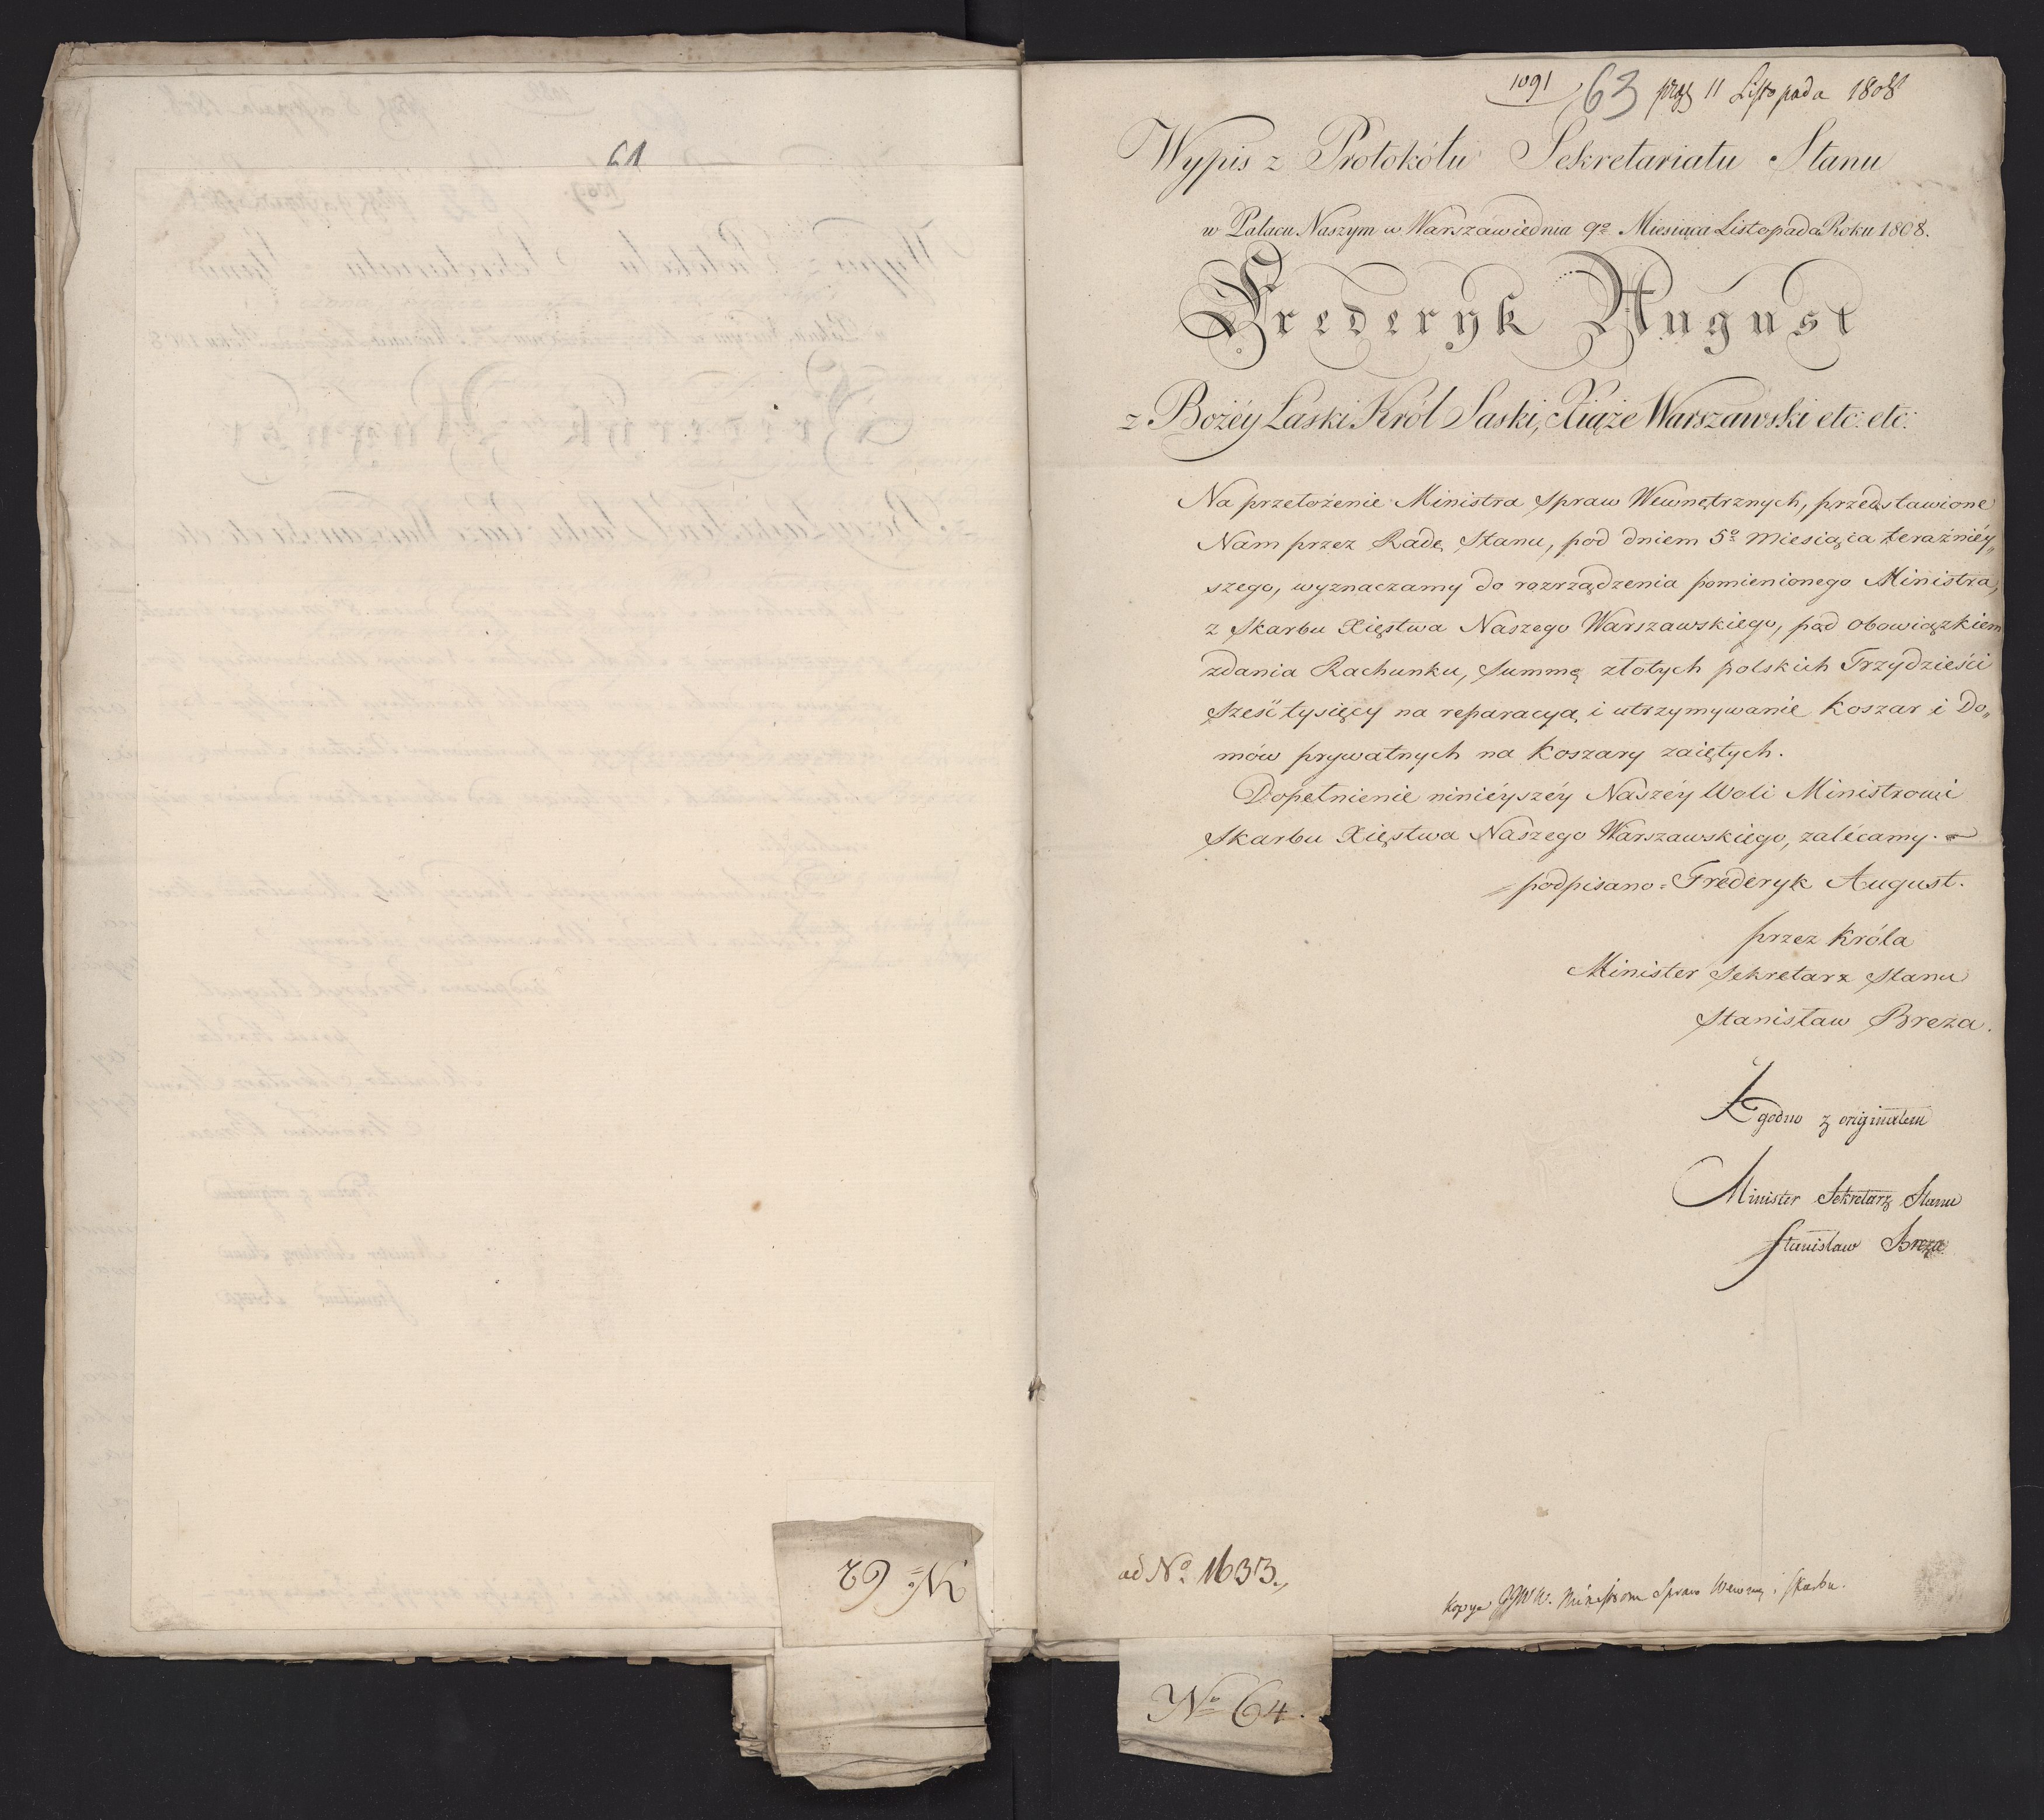 61
No 62
1091
63 11 Listopada 1808
Wypis z Protokółu Sekretariatu Stanu
w Pałacu Naszym w Warszawie dnia 9o Miesiąca Listopada Roku 1808.
Frederyk August
z Bożéy Łaski Król Saski, Xiąże Warszawski etc: etc:
Na przełożenie Ministra Spraw Wewnętrznych, przedstawione
Nam przez Radę Stanu, pod dniem 5o Miesiąca teraźniéy„
szego, wyznaczamy do rozrządzenia pomienionego Ministra,
z Skarbu Xięstwa Naszego Warszawskiego, pod obowiązkiem
zdania Rachunku, Summę złotych polskich Trzydzieści
Sześć tysięcy na reparacyą i utrzymywanie Koszar i Do„
mów prywatnych na Koszary zaiętych.
Dopełnienie ninieyszéy Naszéy Woli Ministrowi
Skarbu Xięstwa Naszego Warszawskiego, zalécamy.
podpisano = Frederyk August.
przez Króla
Minister Sekretarz Stanu
Stanisław Breza.
Zgodno z originałem
Minister Sekretarz Stanu
Stanisław Breza
ad No 1633.
Kopye JJWW. Ministrom Spraw Wewnę i Skarbu.
No 64.